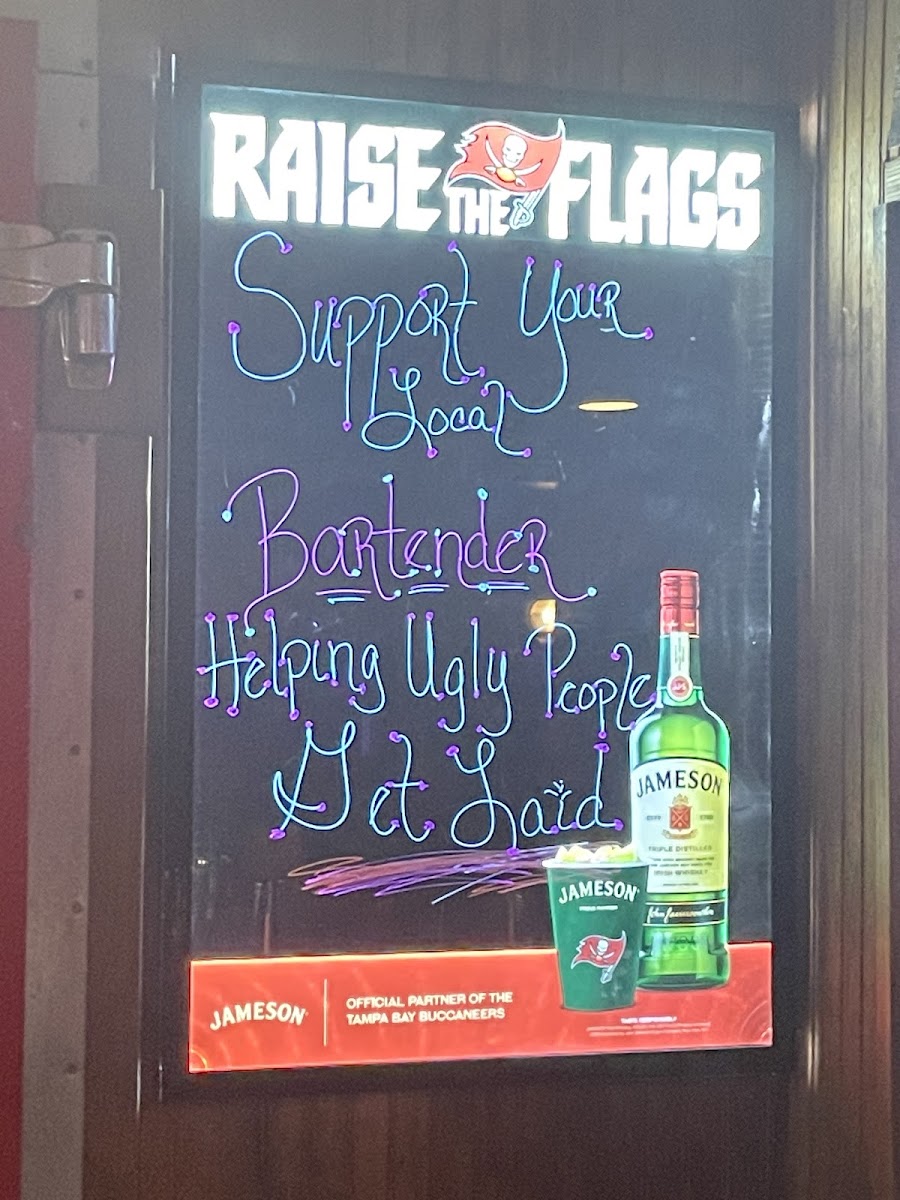 RAISE THE FLAGS
Support Your
Local
Bartender
Helping Ugly People
Get Laid
JAMESON
TRIPLE DISTILLED
IRISH WHISKEY
JAMESON
JAMESON
OFFICIAL PARTNER OF THE
TAMPA BAY BUCCANEERS
TASTE RESPONSIBLY